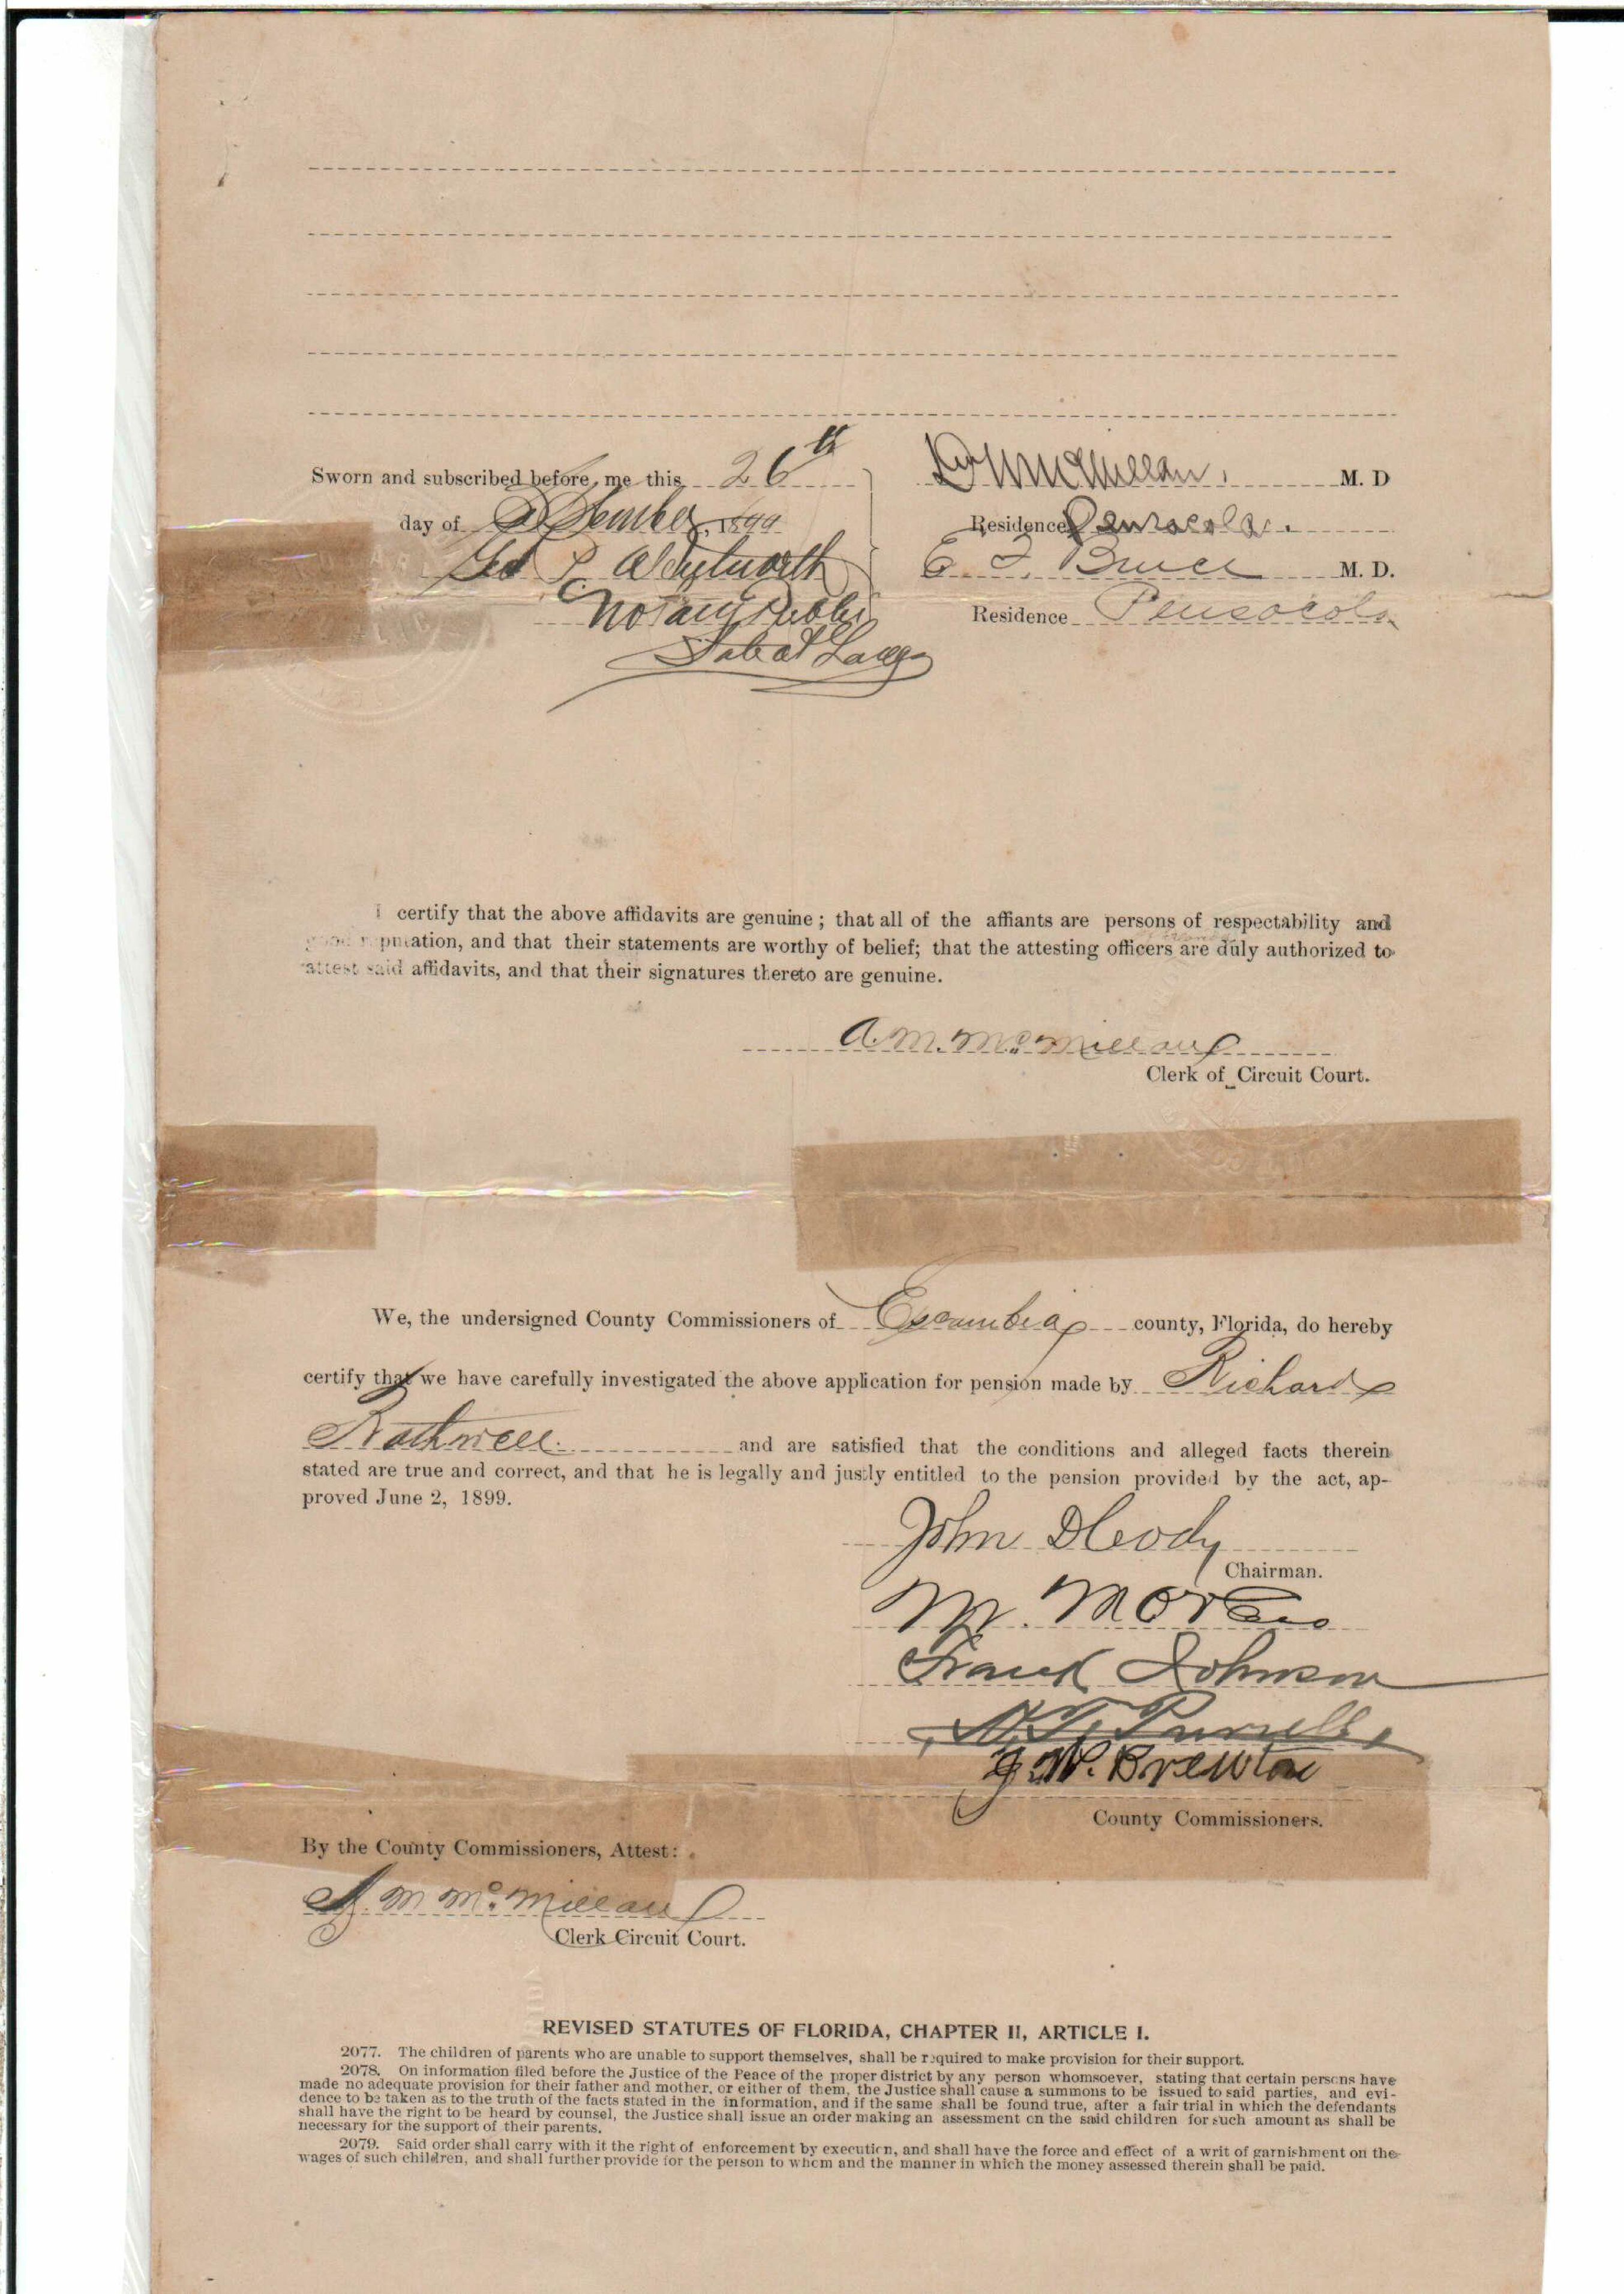 Sworn and subscribed before me this 26th
day of September, 1899
Geo P. Wentworth
Notary Public
State at Large
McMillan, M. D
Residence Pensacola.
E. F. Bruce M. D.
Residence Pensacola
I certify that the above affidavits are genuine; that all of the affiants are persons of respectability and
good reputation, and that their statements are worthy of belief; that the attesting officers are duly authorized to
attest said affidavits, and that their signatures thereto are genuine.
A. M. McMillan
Clerk of Circuit Court.
We, the undersigned County Commissioners of Escambia county, Florida, do hereby
certify that we have carefully investigated the above application for pension made by Richard
Rothwell. and are satisfied that the conditions and alleged facts therein
stated are true and correct, and that he is legally and justly entitled to the pension provided by the act, ap-
proved June 2, 1899.
John
Chairman.
M.
Frank Johnson
J. W. Brewton
County Commissioners.
By the County Commissioners, Attest:
A. M. McMillan
Clerk Circuit Court.
REVISED STATUTES OF FLORIDA, CHAPTER II, ARTICLE I.
2077. The children of parents who are unable to support themselves, shall be required to make provision for their support.
2078. On information filed before the Justice of the Peace of the proper district by any person whomsoever, stating that certain persons have
made no adequate provision for their father and mother, or either of them, the Justice shall cause a summons to be issued to said parties, and evi-
dence to be taken as to the truth of the facts stated in the information, and if the same shall be found true, after a fair trial in which the defendants
shall have the right to be heard by counsel, the Justice shall issue an order making an assessment on the said children for such amount as shall be
necessary for the support of their parents.
2079. Said order shall carry with it the right of enforcement by execution, and shall have the force and effect of a writ of garnishment on the
wages of such children, and shall further provide for the person to whom and the manner in which the money assessed therein shall be paid.